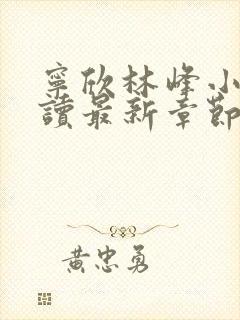 寧欣林峰小
讀最新章節
黃忠勇